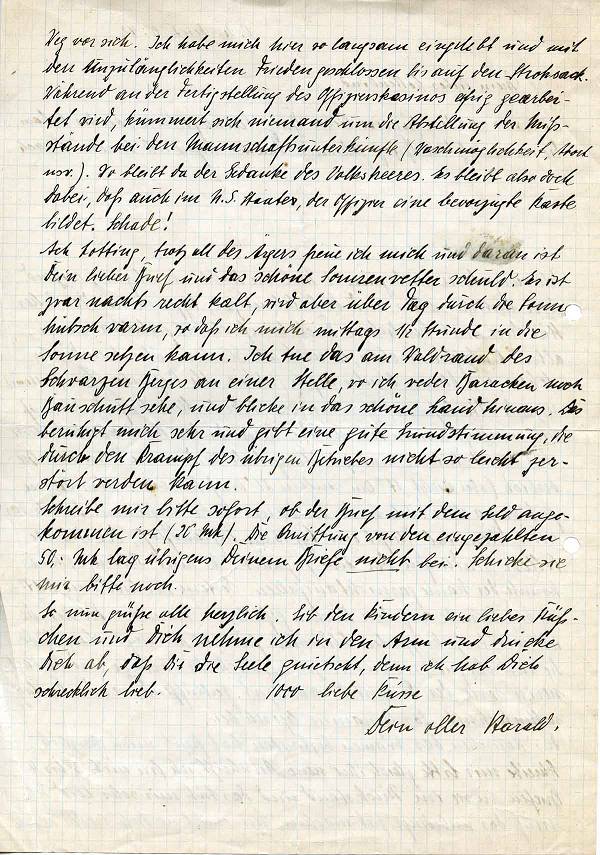 Weg vor sich. Ich habe mich hier so langsam eingelebt und mit
den Unzulänglichkeiten Frieden geschlossen bis auf den Strohsack.
Während an der Fertigstellung des Offizierskasinos eifrig gearbei-
tet wird, kümmert sich niemand um die Abstellung der Miß-
stände bei den Mannschaftsunterkünften (Waschmöglichkeit, Abort
usw.). Wo bleibt da der Gedanke des Volksheeres. Es bleibt also doch
dabei, daß auch im N.S. Staate, der Offizier eine bevorzugte Kaste
bildet. Schade!
Ach Lotting, trotz all des Ärgers freue ich mich und daran ist
Dein lieber Brief und das schöne Sonnenwetter schuld. Es ist
zwar nachts recht kalt, wird aber über Tag durch die Sonne
hübsch warm, so daß ich mich mittags 1/2 Stunde in die
Sonne setzen kann. Ich tue das am Waldrand des
Schwarzen Berges an einer Stelle, wo ich weder Baracken noch
Bauschutt sehe, und blicke in das schöne Land hinaus. Das
beruhigt mich sehr und gibt eine gute Grundstimmung, die
durch den Krampf des übrigen Betriebes nicht so leicht zer-
stört werden kann.
Schreibe mir bitte sofort, ob der Brief mit dem Geld ange-
kommen ist (20 Mk). Die Quittung von den eingezahlten
50,- Mk lag übrigens Deinem Briefe nicht bei. Schicke sie
mir bitte noch.
So nun grüße alle herzlich. Gib den Kindern ein liebes Küß-
chen und Dich nehme ich in den Arm und drücke
Dich ab, daß Dir die Seele quietscht, denn ich hab Dich
schrecklich lieb. 1000 liebe Küsse
Dein oller Harald.